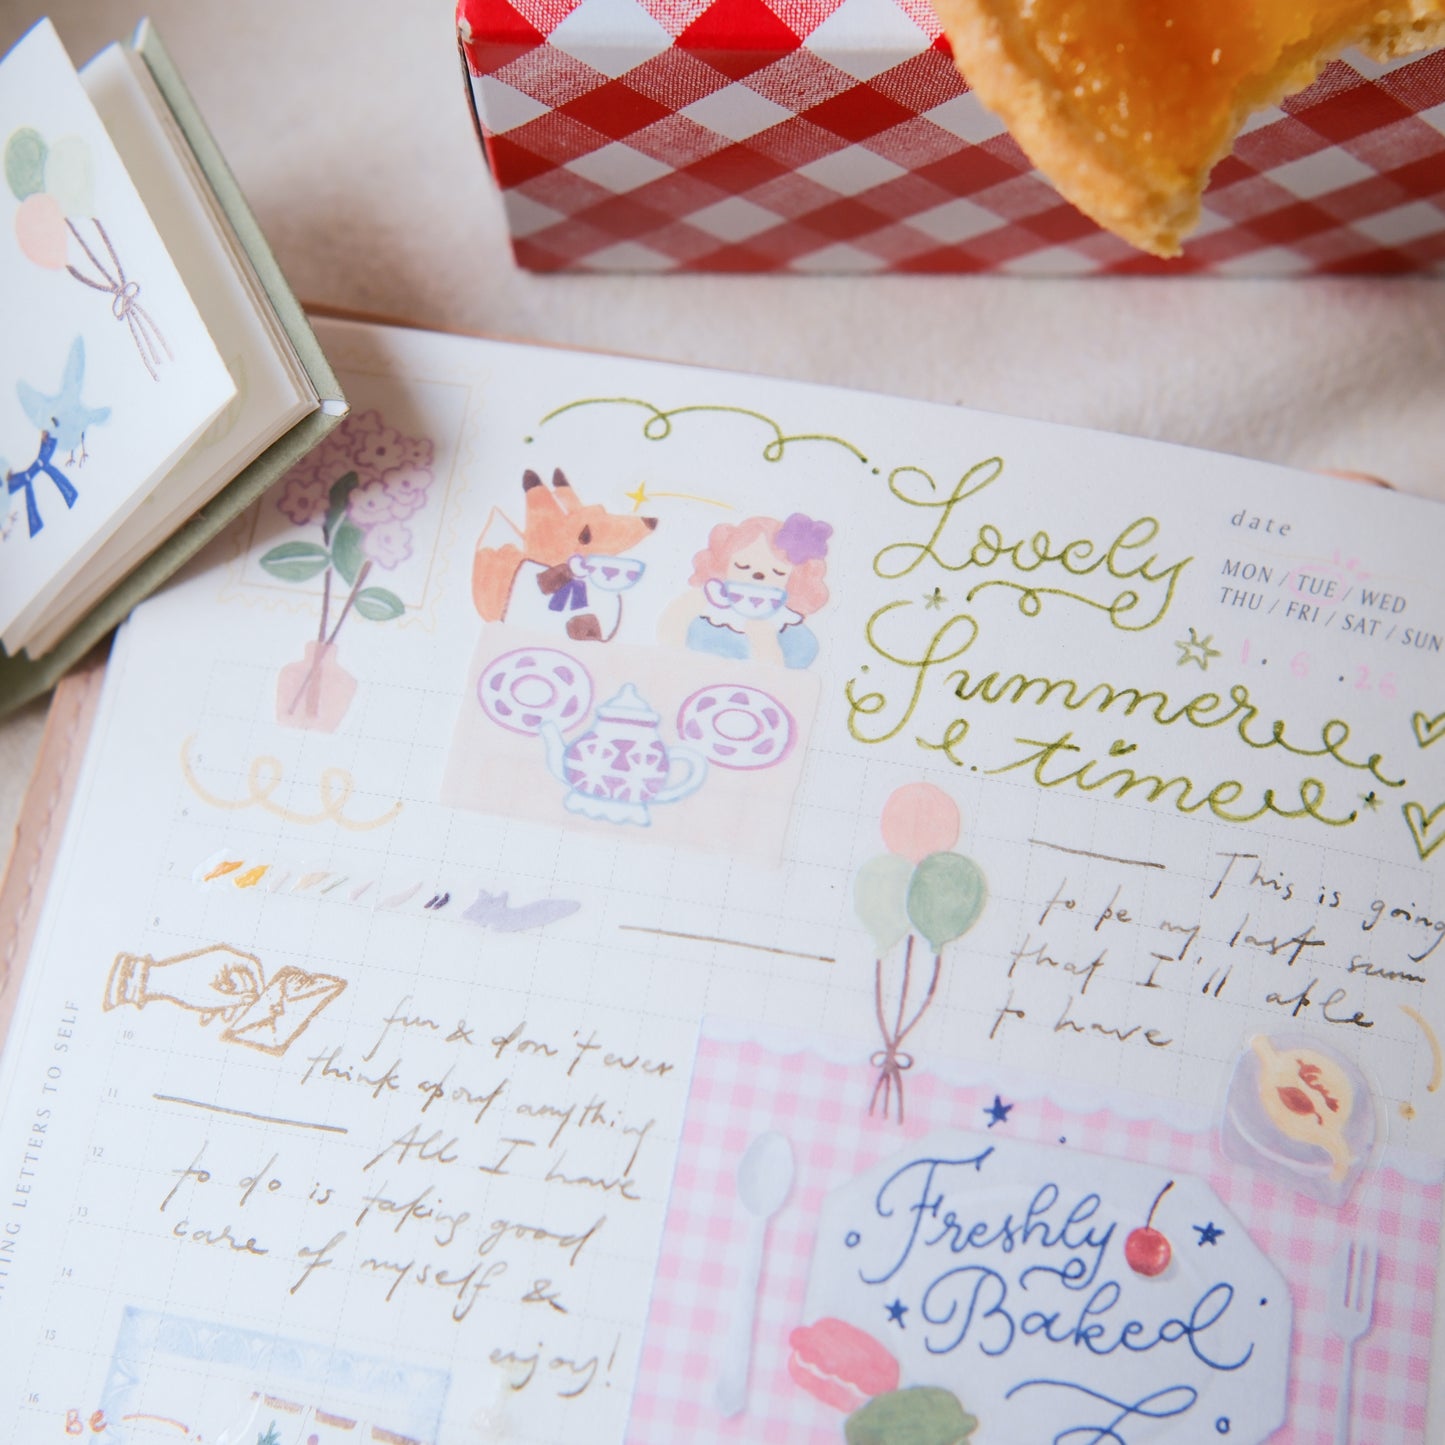 Lovely
Summer
time
date
MON / TUE / WED
THU / FRI / SAT / SUN
1.6.26
This is going
to be my last summ
that I'll able
to have
fun & don't ever
think about anything
All I have
to do is taking good
care of myself &
enjoy!
Freshly
Baked
5
6
7
8
10
11
12
13
14
15
16
BE
ITING LETTERS TO SELF